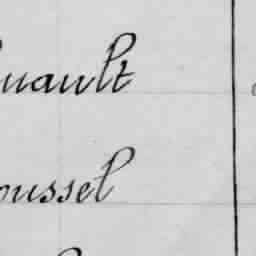 uault
oussel